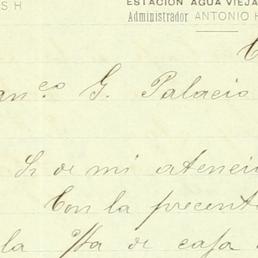 S H
ESTACIÓN AGUA VIEJA
Administrador ANTONIO H
an.co G. Palacio
Sr de mi atenci
Con la presente
la de casa